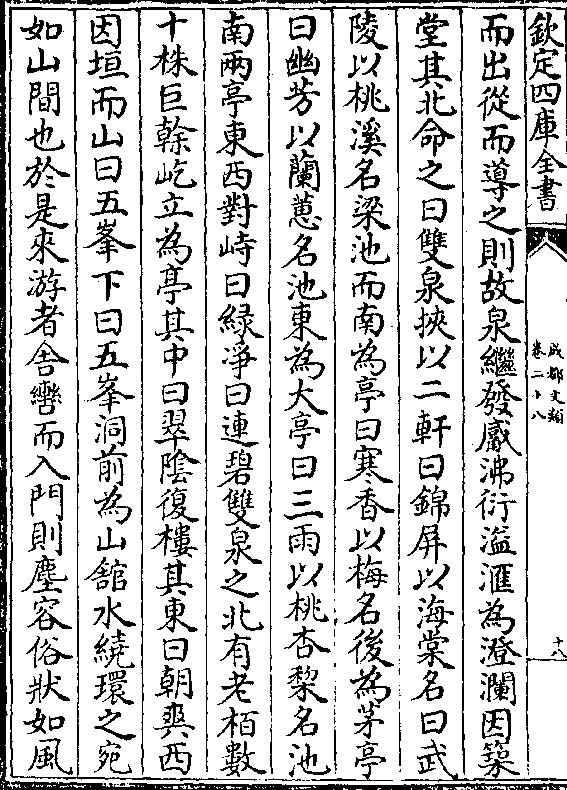 欽定四庫全書
成都文類
卷二十八
十八
而出從而導之則故泉繼發觱沸衍溢滙為澄瀾因築
堂其北命之曰雙泉挾以二軒曰錦屏以海棠名曰武
陵以桃溪名梁池而南為亭曰寒香以梅名後為茅亭
曰幽芳以蘭蕙名池東為大亭曰三雨以桃杏棃名池
南兩亭東西對峙曰緑淨曰連碧雙泉之北有老栢數
十株巨榦屹立為亭其中曰翠陰復樓其東曰朝爽西
因垣而山曰五峯下曰五峯洞前為山舘水繞環之宛
如山間也於是來游者舎轡而入門則塵容俗狀如風